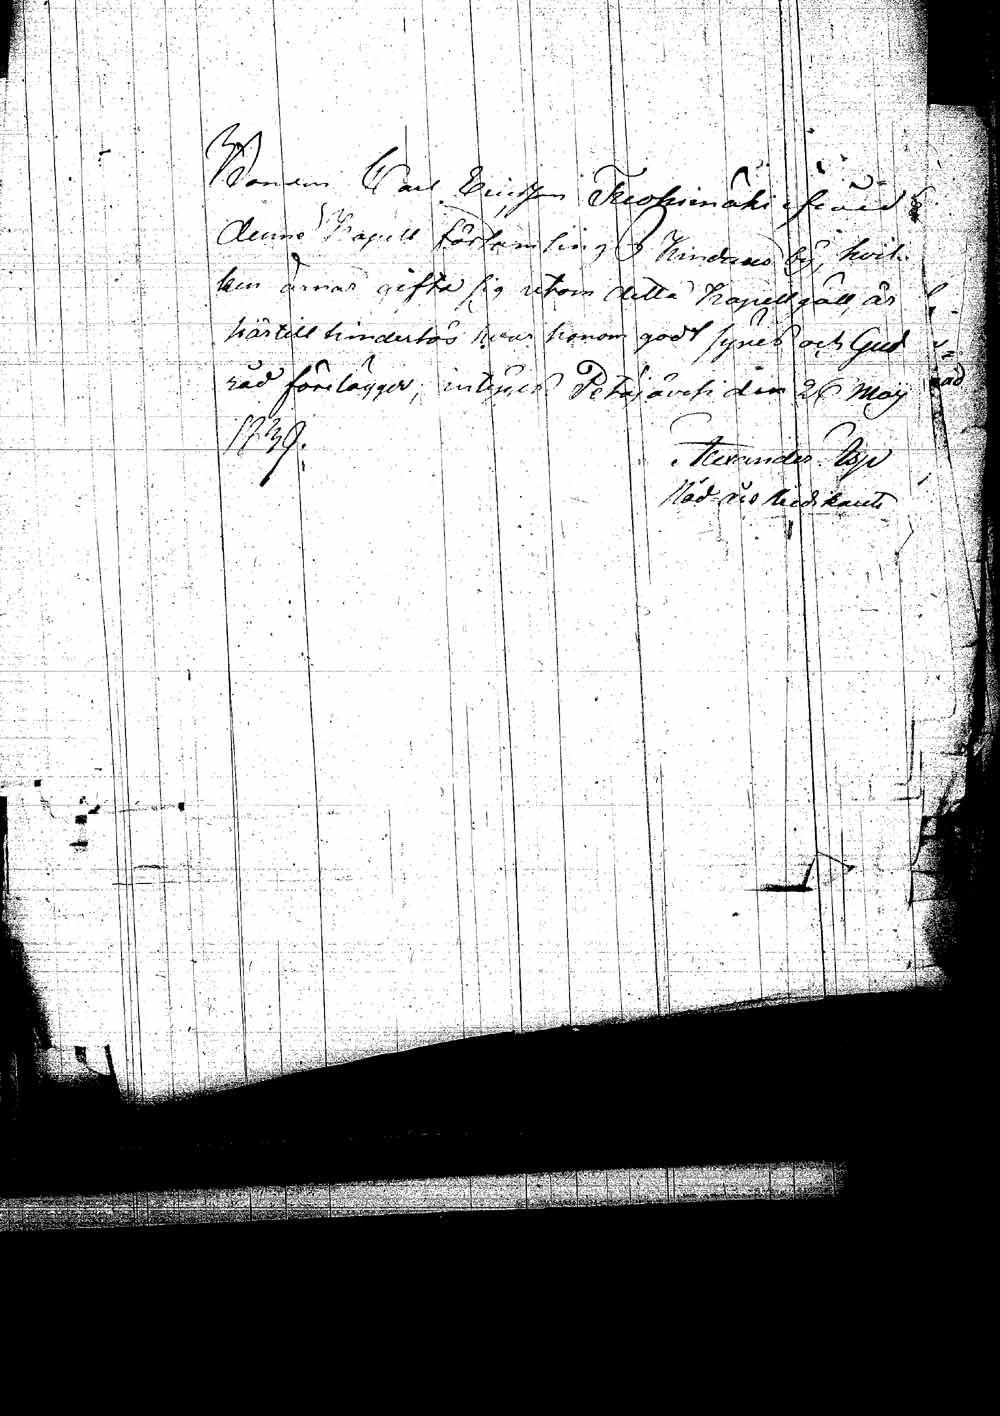 Bonden Carl Ericsson ifrån
denna Kapell församling Hindans by, hvil-
ken ärnar gifta sig utom detta Kapellgäll, är
härtill hinderlös hvar honom godt synes och Gud
råd förelägger; intygas Petäjävesi den 26 Maij
1739.
Alexander Asp